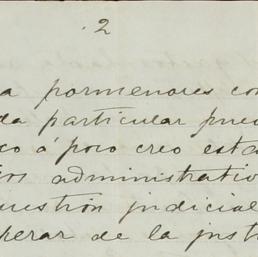 2
a pormenores con
da particular pue
co á poco creo esta
ios administrativo
uestión judicial
perar de la just